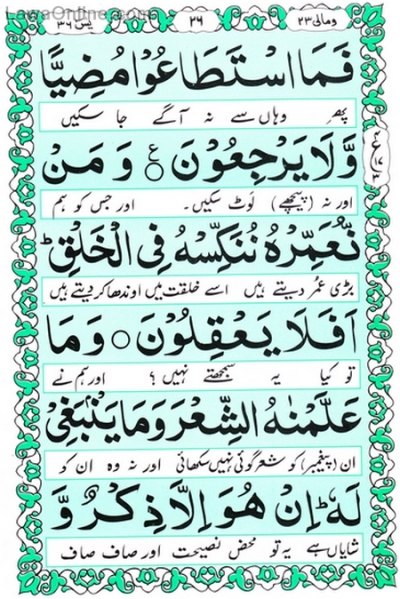 LawaOnline.com
ومالی ۲۳ ۲۶ یٰس ۳۶
فَمَا اسْتَطَاعُوْا مُضِيًّا
پھر وہاں سے نہ آگے جا سکیں
وَّلَا يَرْجِعُوْنَ ۝ وَ مَنْ
اور نہ (پیچھے) لوٹ سکیں۔ اور جس کو ہم
نُّعَمِّرْهُ نُنَكِّسْهُ فِي الْخَلْقِ ؕ
بڑی عمر دیتے ہیں اسے خلقت میں اوندھا کر دیتے ہیں
اَفَلَا يَعْقِلُوْنَ ۝ وَ مَا
تو کیا یہ سمجھتے نہیں؟ اور ہم نے
عَلَّمْنٰهُ الشِّعْرَ وَمَا يَنْۢبَغِيْ
ان (پیغمبر) کو شعر گوئی نہیں سکھائی اور نہ وہ ان کو
لَهٗ ؕ اِنْ هُوَ اِلَّا ذِكْرٌ وَّ
شایاں ہے یہ تو محض نصیحت اور صاف صاف